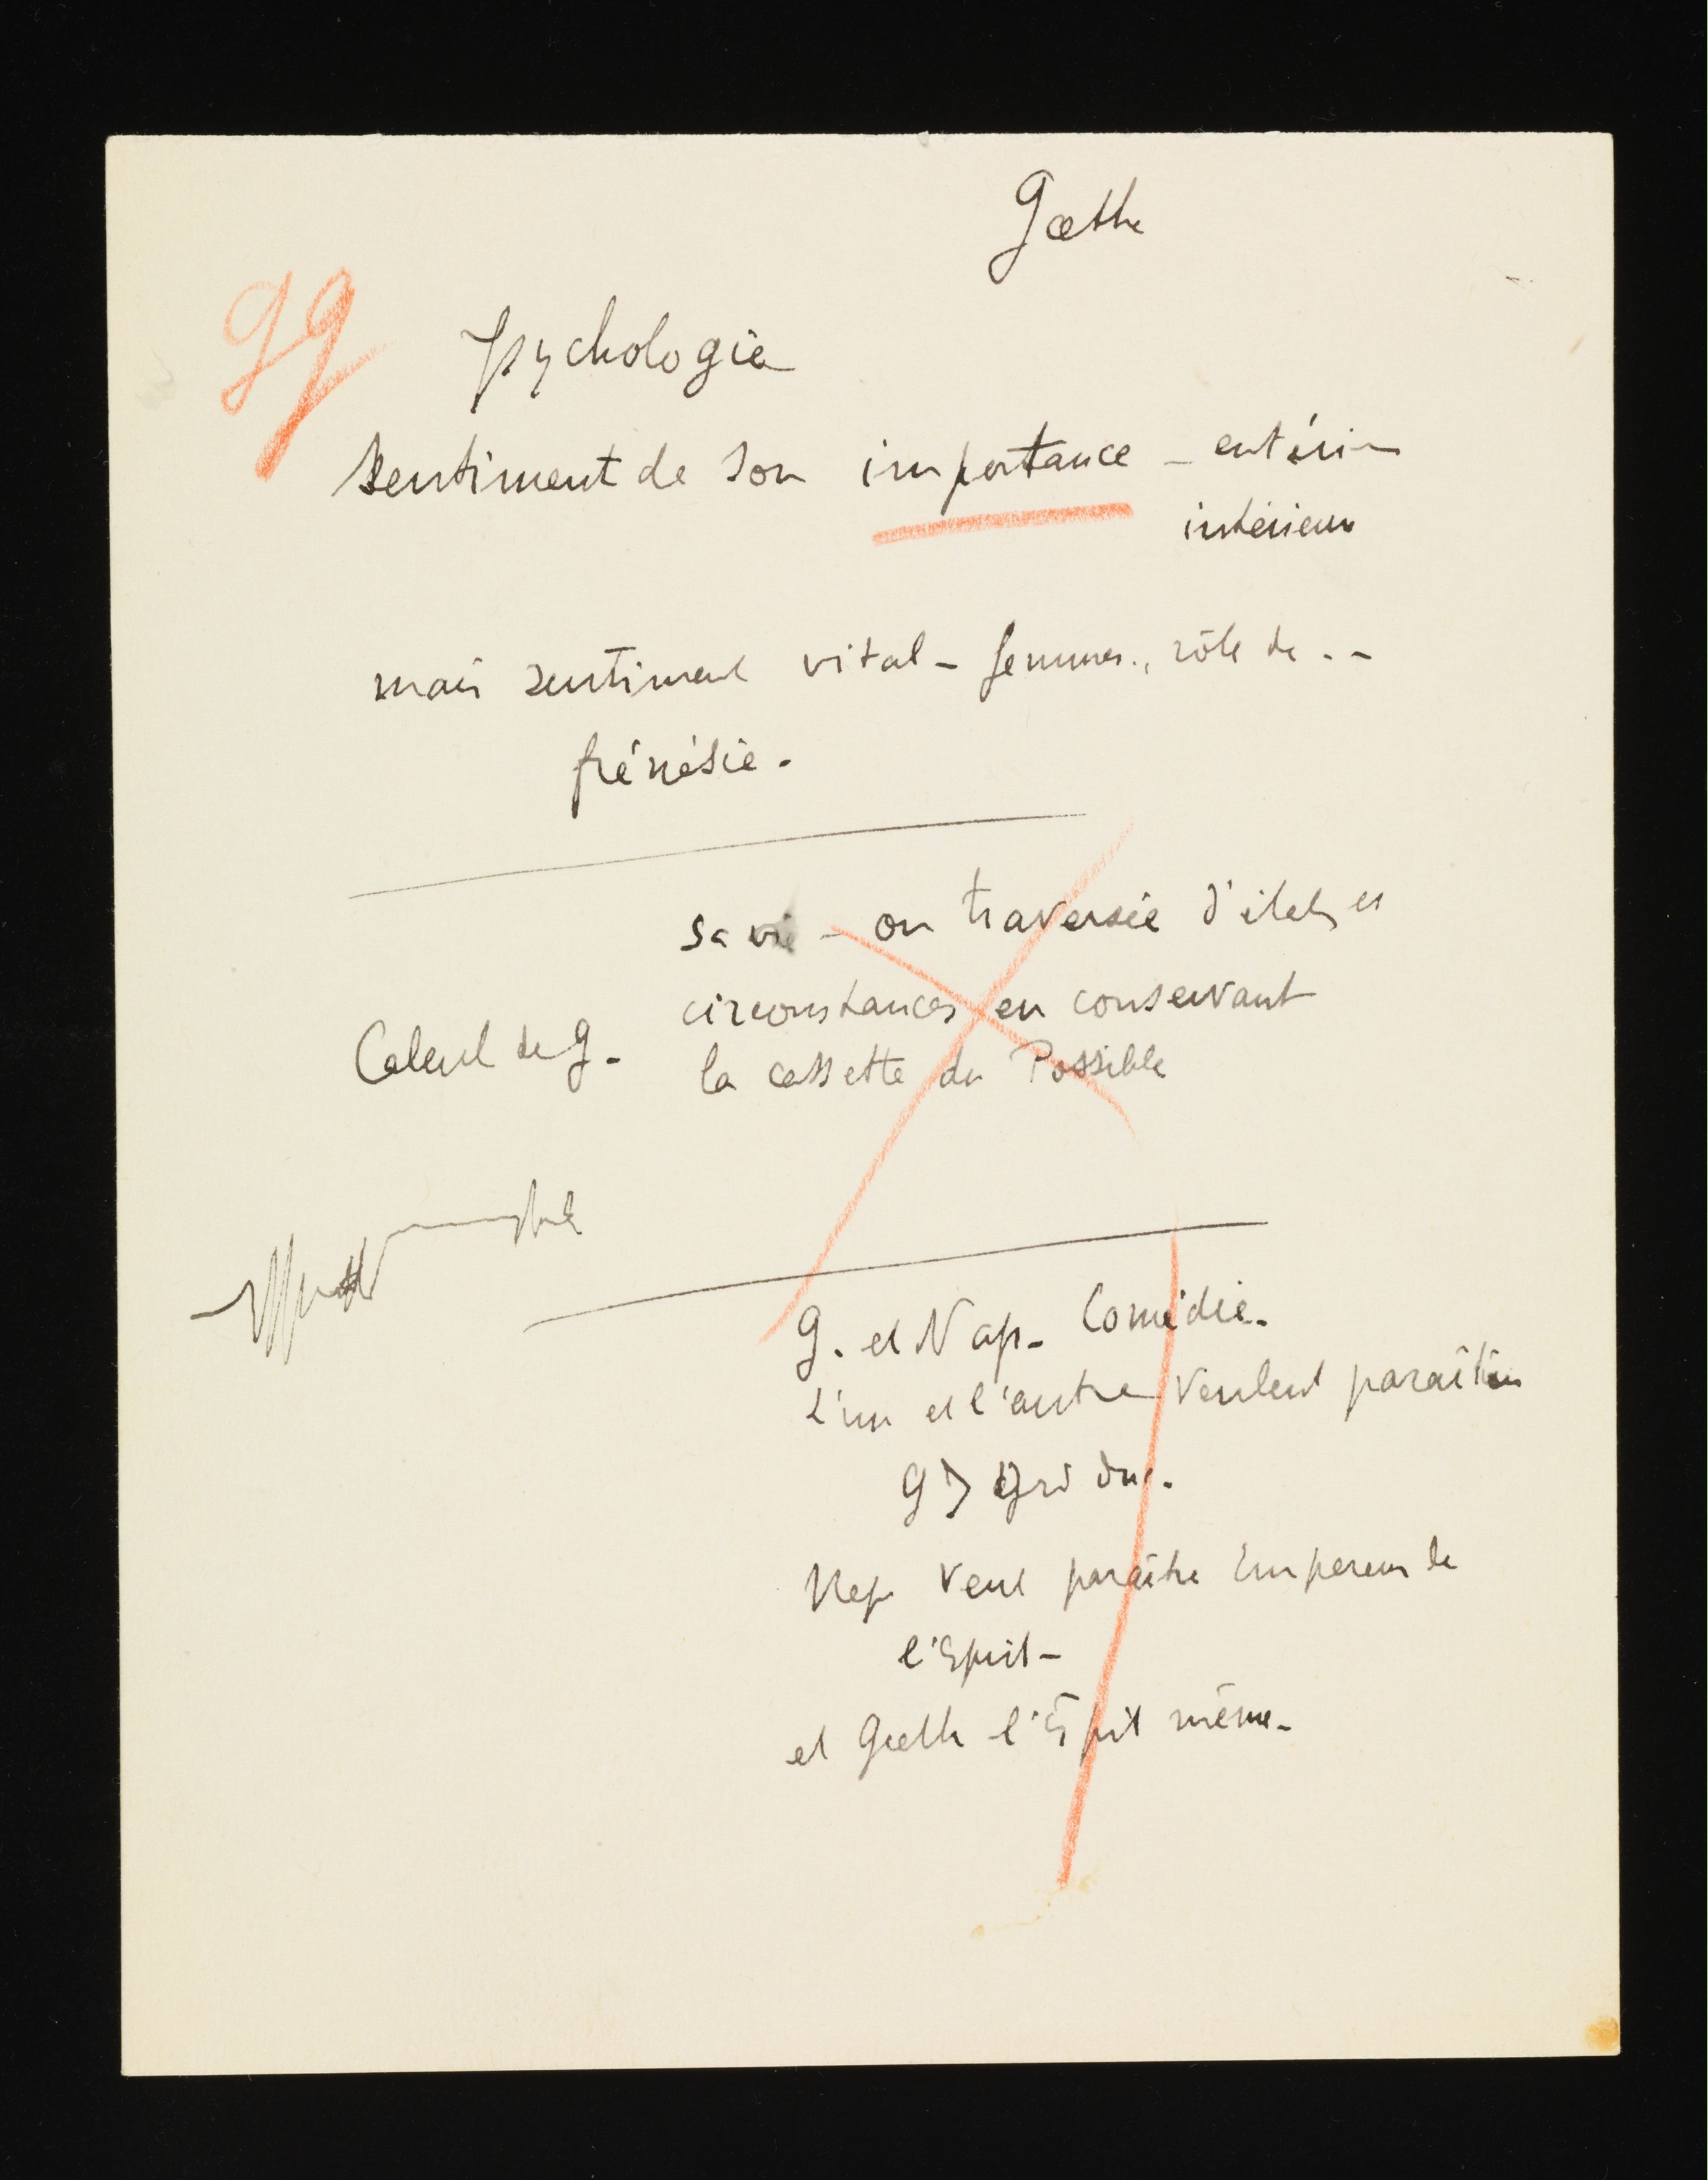 Gœthe
gg
psychologie
Sentiment de son importance – extérieur
intérieur
mais sentiment vital – femmes., rôle de . –
frénésie.
sa vie – on traversée d'états et
circonstances en conservant
Calcul de g. la cassette du Possible
g. et Nap – Comédie.
L'un et l'autre veulent paraître
g duc.
Nap veut paraître Empereur de
l'Esprit –
et Gœthe l'Esprit même –